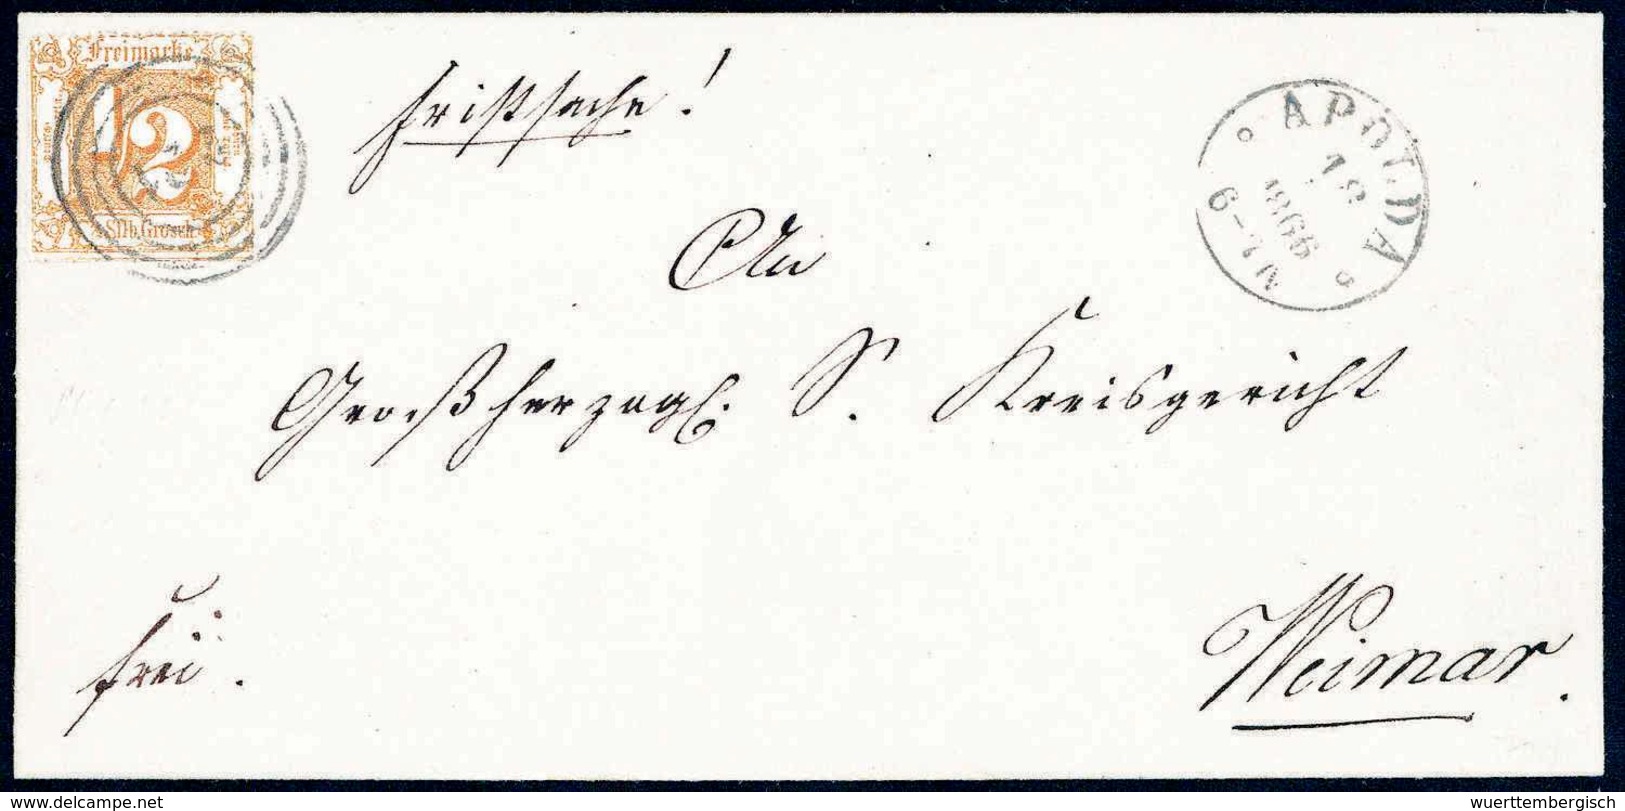 Freimarke
1/2
Silb. Grosch.
Fristsache!
APOLDA
1866
6-7 N
An
Großherzogl. S. Kreisgericht
Weimar.
frei.
www.delcampe.net
wuerttembergisch